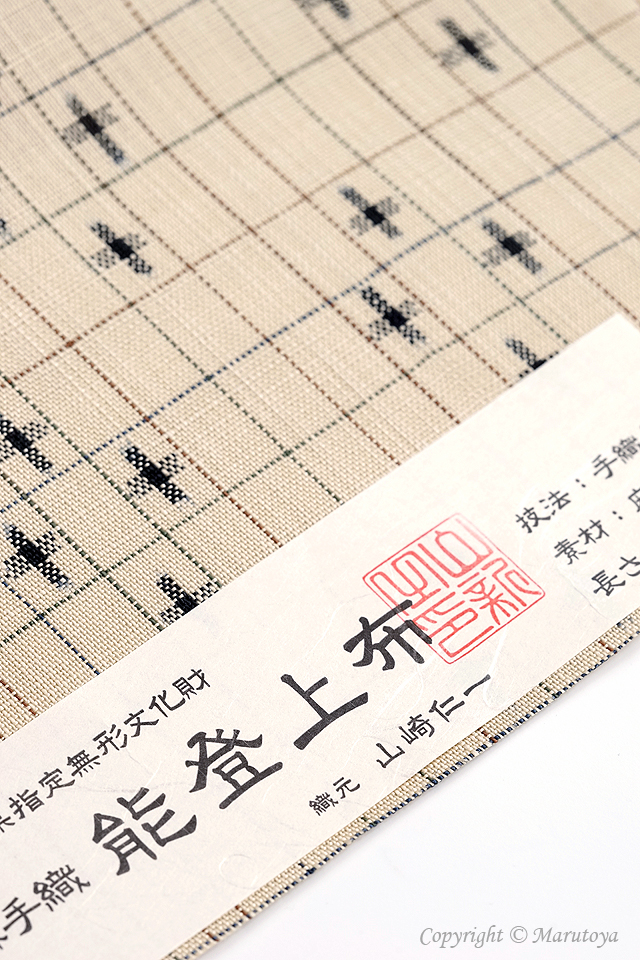 指定無形文化財
手織
能登上布
織元 山崎仁一
技法：手織
素材：
長さ
Copyright © Marutoya